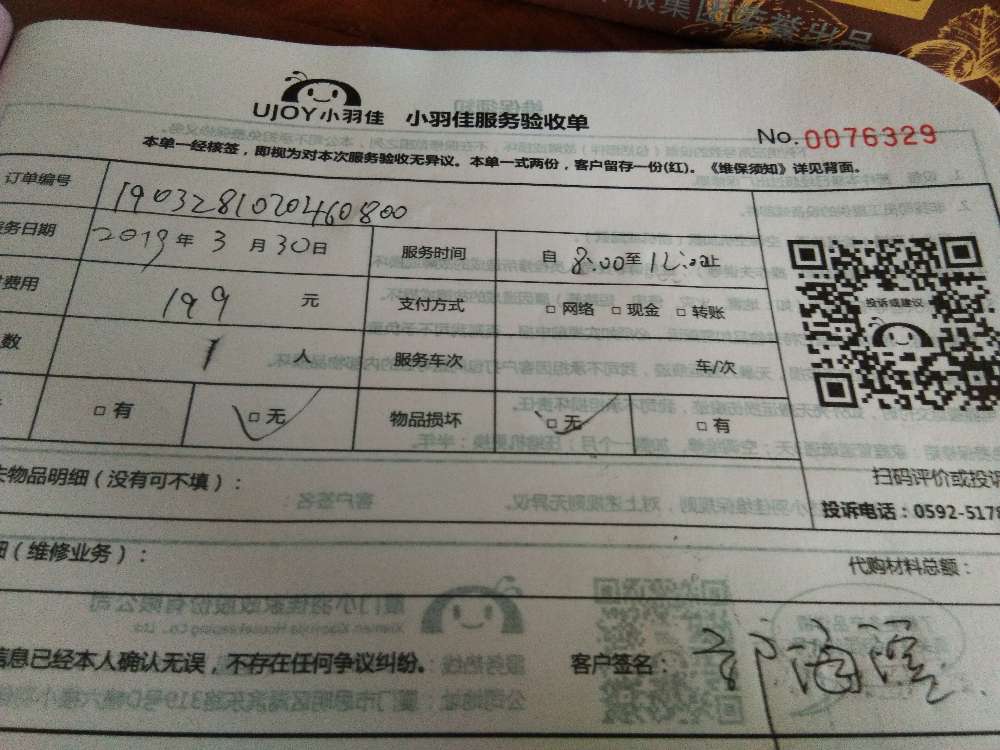 UJOY小羽佳 小羽佳服务验收单
No. 0076329
本单一经核签，即视为对本次服务验收无异议。本单一式两份，客户留存一份(红)。《维保须知》详见背面。
订单编号 1903281020460800
务日期 2019 年 3 月 30 日 服务时间 自 8:00 至 12:00 止
费用 199 元 支付方式 □ 网络 □ 现金 □ 转账
数 1 人 服务车次 车/次
□ 有 □ 无 物品损坏 □ 无 □ 有
投诉或建议
物品明细（没有可不填）：
扫码评价或投诉
投诉电话：0592-5178
（维修业务）：
代购材料总额：
信息已经本人确认无误，不存在任何争议纠纷。 客户签名：